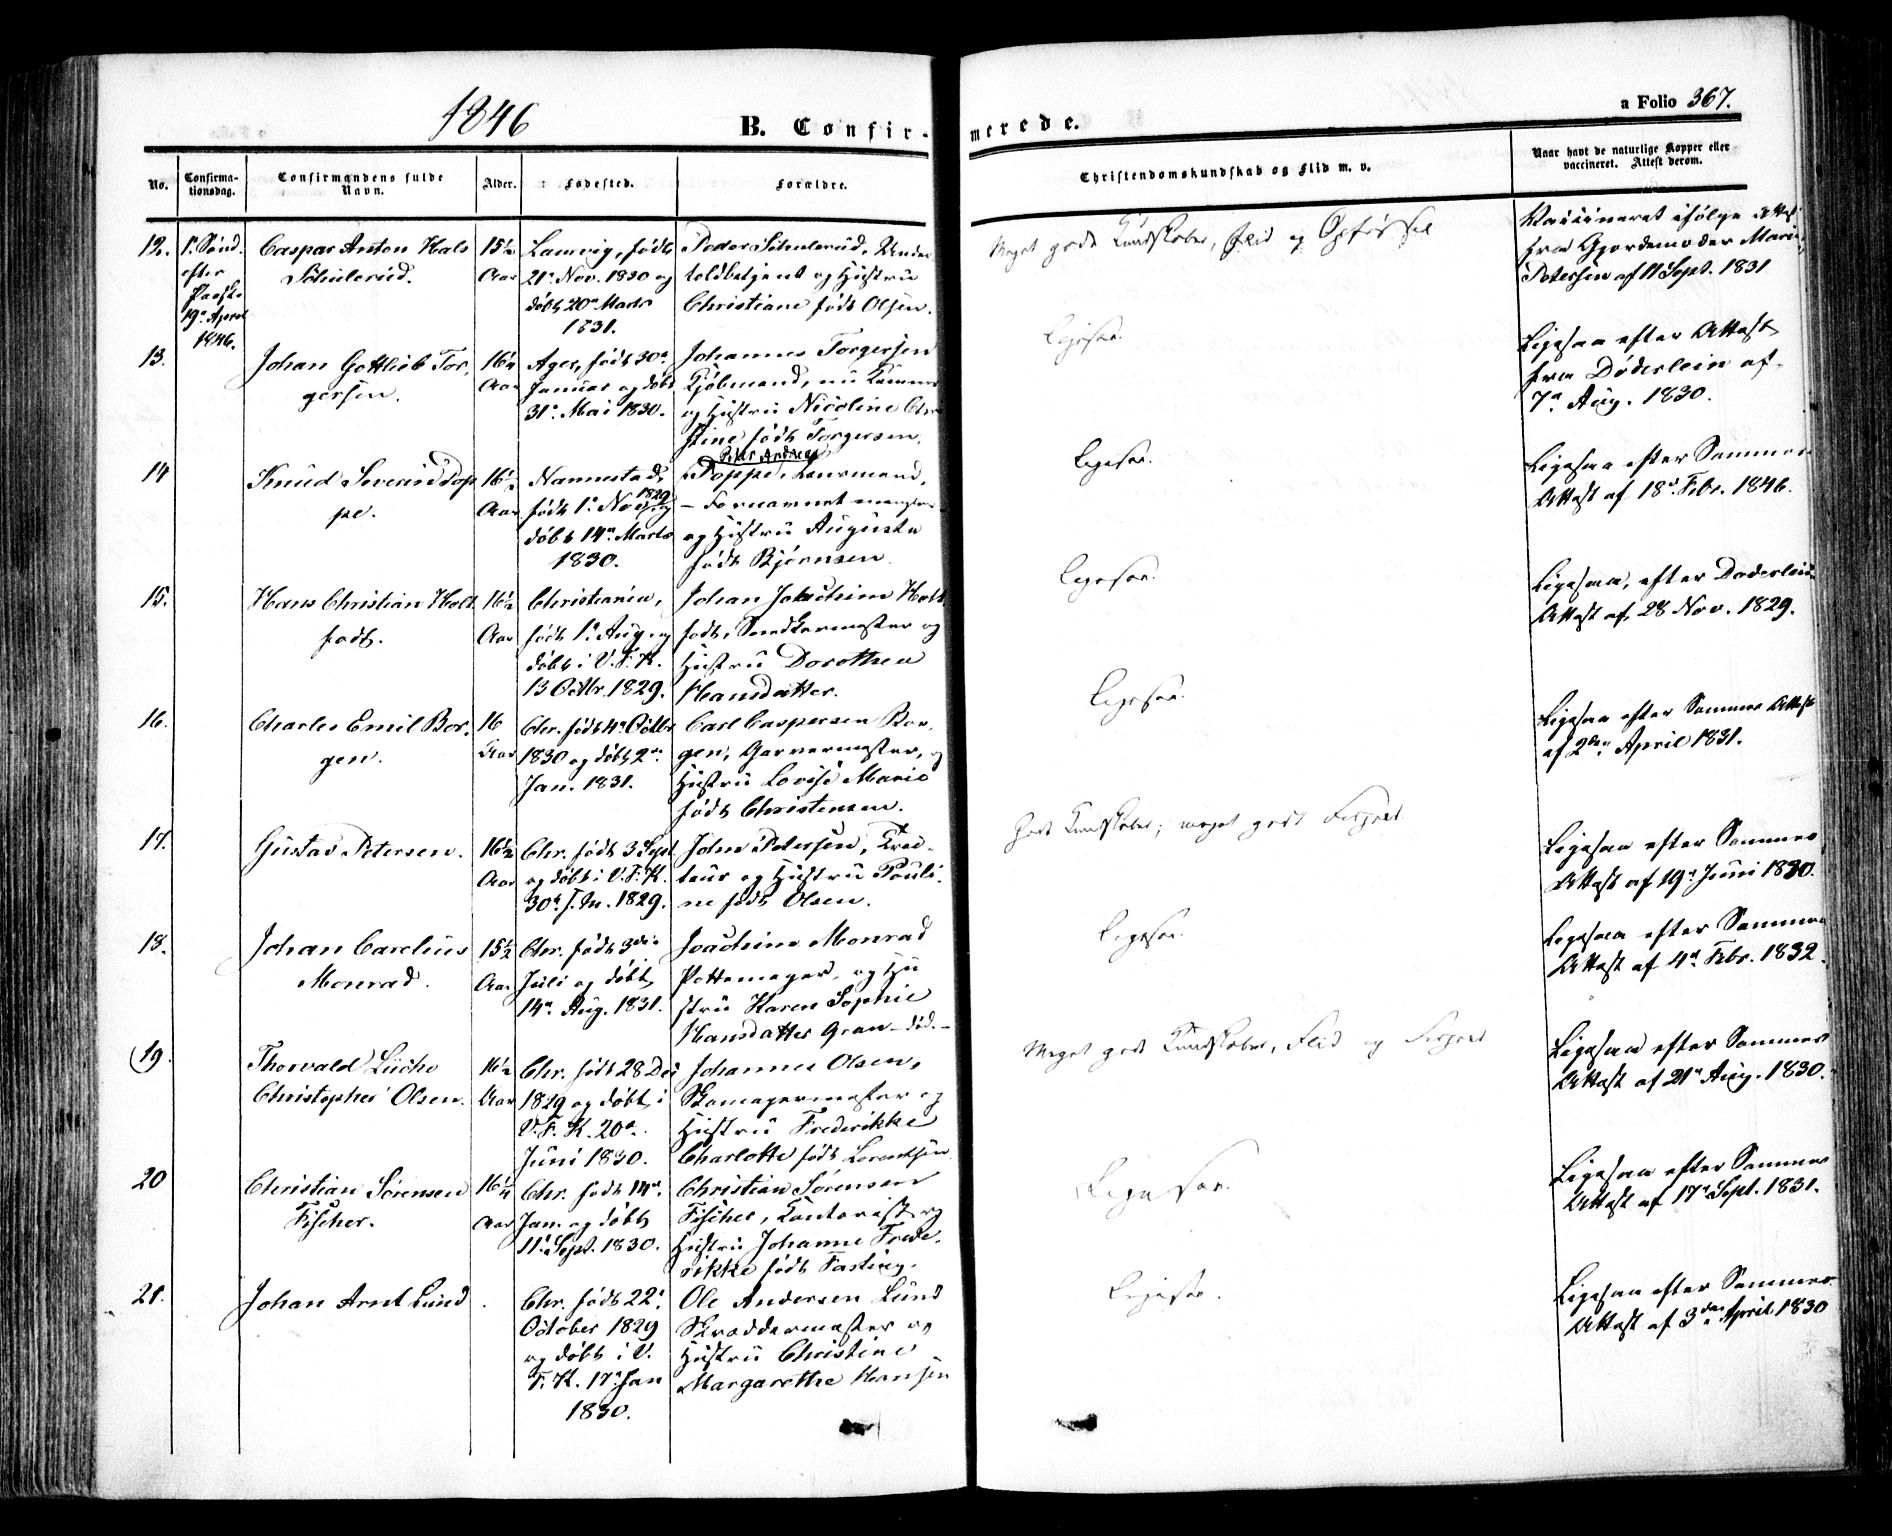 1846
B. Confir-
merede.
a Folio 367.
No.
Confirma-
tionsdag.
Confirmandens fulde
Navn.
Alder.
Fødested.
Forældre.
Christendomskundskab og Flid m. v.
Naar havt de naturlige Kopper eller
vaccineret. Attest derom.
12.
1ste Sönd.
efter
Paaske
19de April
1846.
Caspar Anton Hals
Schulerud.
15½
Aar
Lanrvig, födt
21de Nov. 1830 og
döbt 20de Marts
1831.
Peder Schulerud, Under
toldbetjent og Hustru
Christiane född Olsen.
Meget gode Kundskaber, Flid og Opförsel
Vaccineret ifölge Attest
fra Gjordemoder Marie
Petersen af 11 Sept. 1831
13.
Johan Gottlieb Tor-
gersen.
16¼
Aar
Ager, födt 30te
Januar og döbt
31te Mai 1830.
Johannes Torgersen
Kjöbmand, nu
og Hustru Nicoline Chri
stine födt Torgersen.
Ligesaa.
Ligesaa efter Attest
fra Döderlein af
7de Aug. 1830.
14
Knud Severin Pop
pe.
16½
Aar
Nannestad,
födt 1ste Nov. 1829 og
döbt 14de Marts
1830.
Peter Andreas
Poppe, Lensmand,
– Fornavnet mangler –
og Hustru Augusta
födt Bjørnsen
Ligesaa.
Ligesaa efter Sammes
Attest af 18de Febr. 1846.
15.
Hans Christian Holt
fodt.
16½
Aar
Christiania,
födt 1ste Aug. og
döbt i V. F. K.
13 Octbr. 1829.
Johan Joachim Holt
fodt, Snedkermester og
Hustru Dorothea
Hansdatter.
Ligesaa.
Ligesaa, efter Døderleins
Attest af 28 Nov. 1829.
16.
Charles Emil Bor-
gen.
16
Aar
Chr. födt 4de Octbr
1830 og döbt 2den
Jan. 1831.
Carl Caspersen Bor-
gen, Garvermester, og
Hustru Lovise Marie
födt Christensen.
Ligesaa.
Ligesaa efter Sammes Attest
af 2den April 1831.
17.
Gustav Petersen.
16½
Aar
Chr. födt 3 Sept
og döbt i V. F. K.
30te s. M. 1829.
John Petersen,
teur og Hustru Pauli-
ne födt Olsen.
Gode Kundskaber; meget god Forhold.
Ligesaa efter Sammes
Attest af 19de Juni 1830.
18.
Johan Carelius
Monrad.
15½
Aar
Chr. födt 3die
Juli og döbt
14de Aug. 1831.
Joachim Monrad
Pottemager, og Hu
stru Karen Sophie
Hansdatter Gran – död. –
Ligesaa.
Ligesaa efter Sammes
Attest af 4de Febr. 1832.
19.
Thorvald Lücke
Christopher Olsen.
16½
Aar
Chr. födt 28 Dec
1829 og döbt i
V. F. K. 20de
Juni 1830.
Johannes Olsen,
Skomagermester og
Hustru Frederikke
Charlotte födt Lorentzen
Meget gode Kundskaber, Flid og Forhold
Ligesaa efter Sammes
Attest af 21de Aug. 1830.
20
Christian Sörensen
Fischer.
16¼
Aar
Chr. födt 14de
Jan. og döbt
11te Sept. 1830.
Christian Sörensen
Fischer, Kontorist og
Hustru Johanne Frede-
rikke födt Fasting.
Ligesaa.
Ligesaa efter Sammes
Attest af 17de Sept. 1831.
21.
Johan Arnt Lund
Chr. födt 22de
October 1829
og döbt i V.
F. K. 17de Jan
1830.
Ole Andersen Lund
Skræddermester og
Hustru Christine
Margarethe Hansen
Ligesaa.
Ligesaa efter Sammes
Attest af 3die April 1830